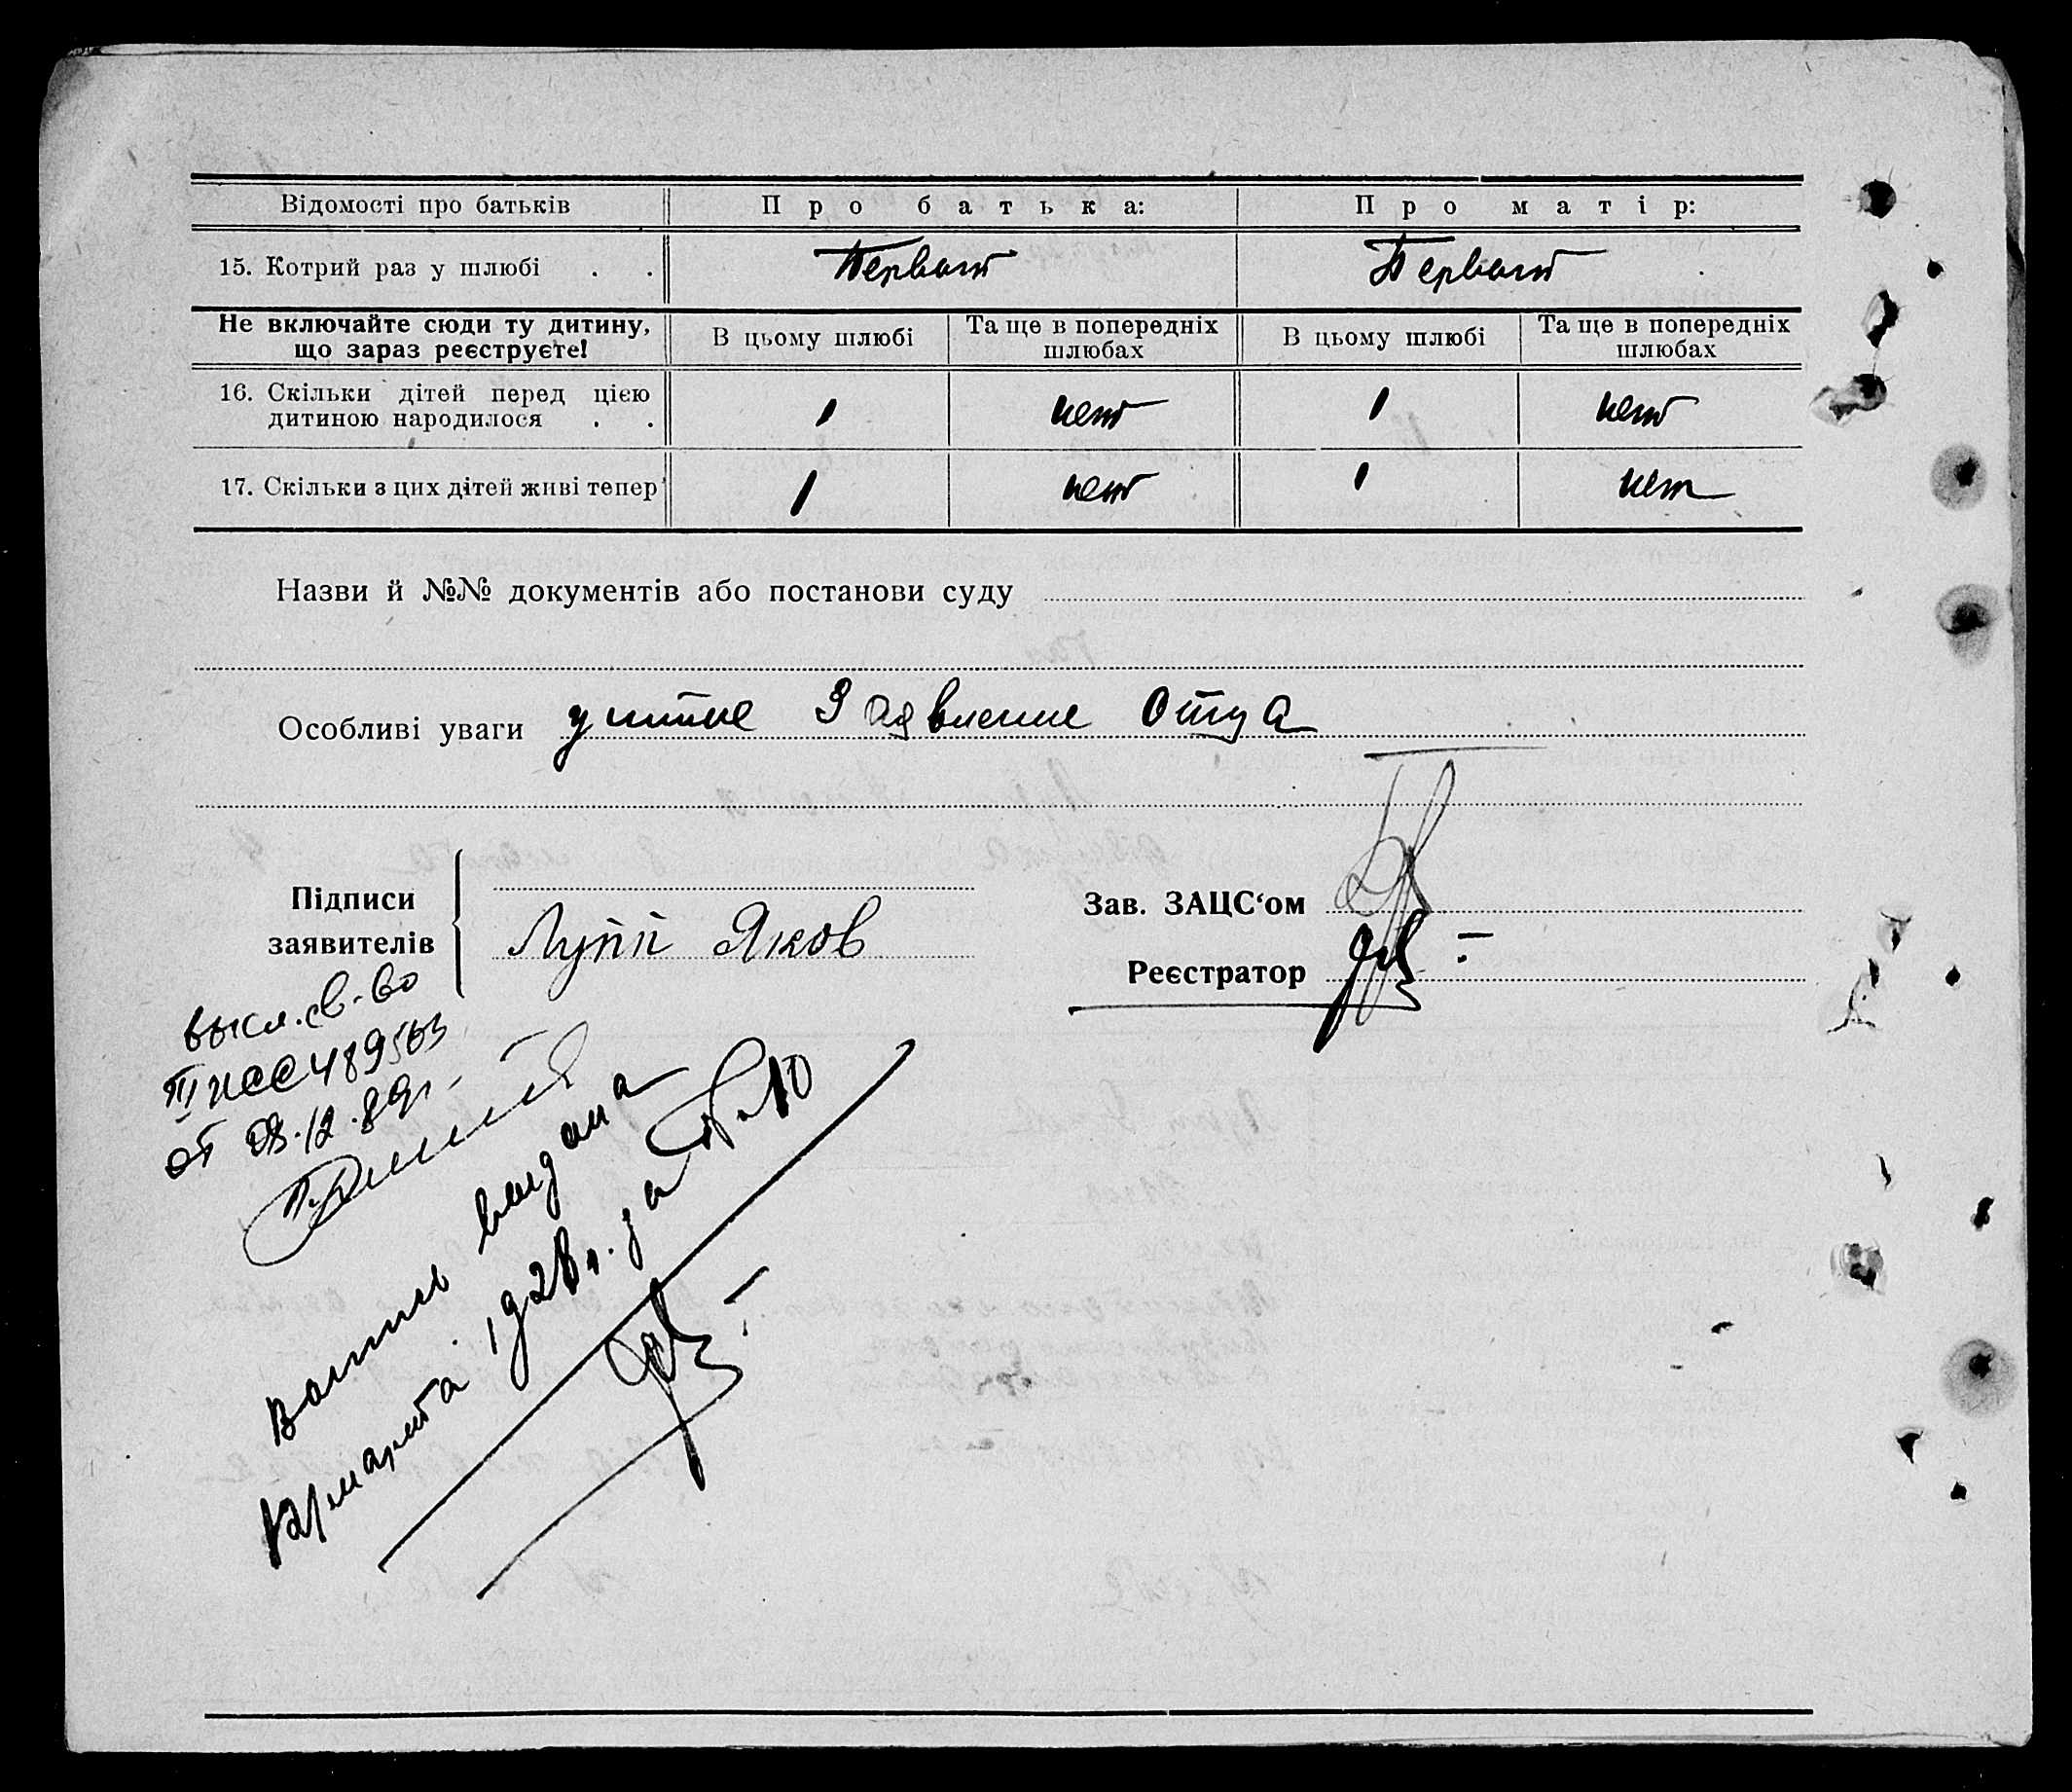 Відомості про батьків Про батька: Про матір:
15. Котрий раз у шлюбі . . Первыт Первыт
Не включайте сюди ту дитину, що зараз реєструєте! В цьому шлюбі Та ще в попередніх шлюбах В цьому шлюбі Та ще в попередніх шлюбах
16. Скільки дітей перед цією
дитиною народилося . . 1 нет 1 нет
17. Скільки з цих дітей живі тепер 1 нет 1 нет
Назви й №№ документів або постанови суду
Особливі уваги устное Заявление отца
Підписи
заявителів
Лупй Яков
Зав. ЗАЦС‘ом
Реєстратор
высл. св-во
от 08.12.89г.
выдана
марта 1928г. за № 10